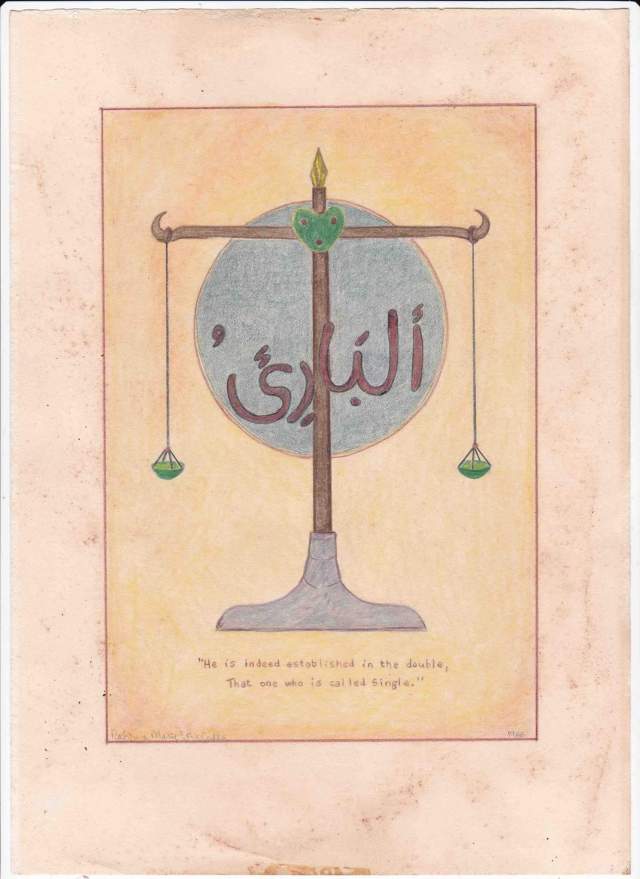 ألبَارِئُ
"He is indeed established in the double,
That one who is called Single."